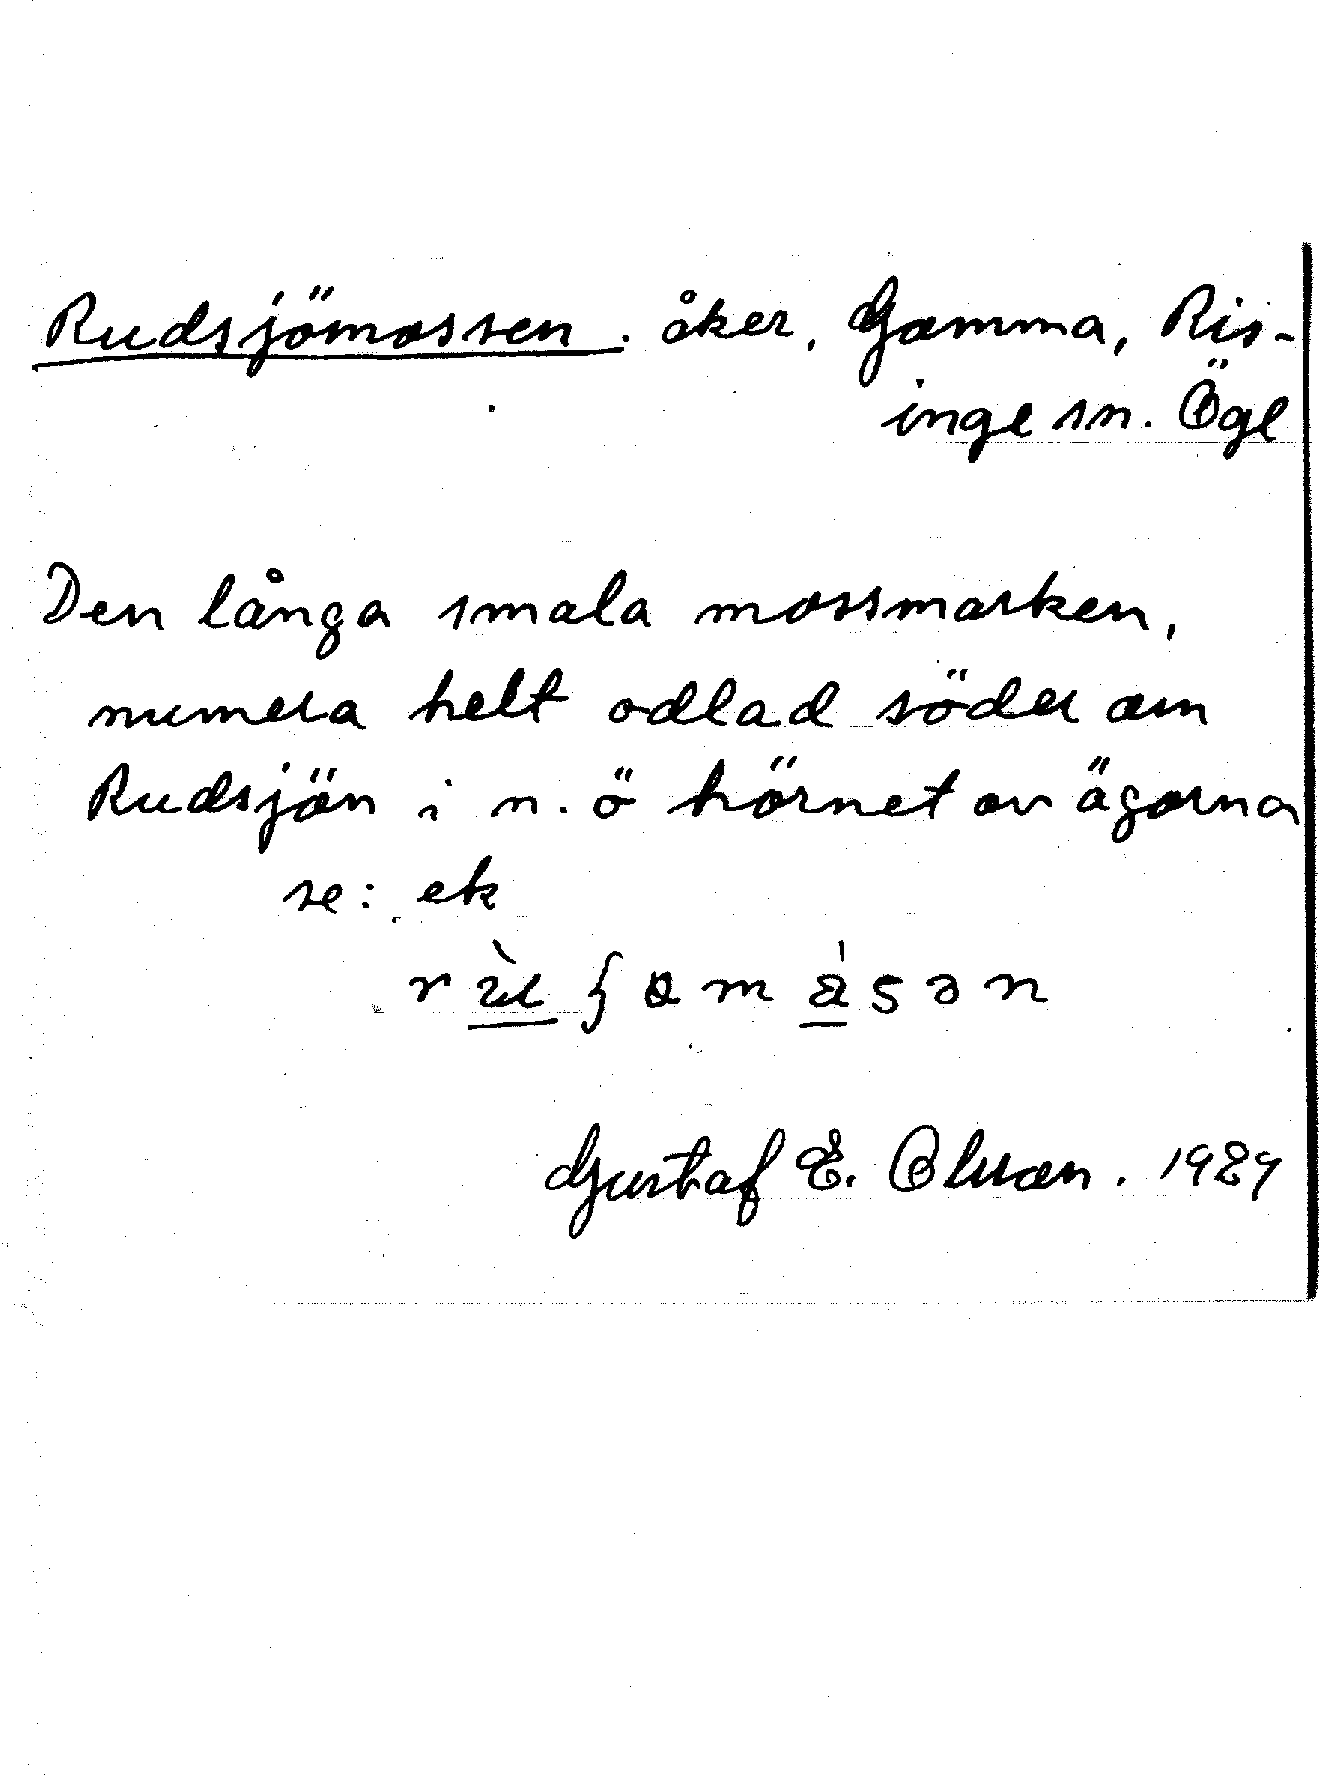 Rudsjömossen. åker, Gamma, Ris-
inge sn. Ögl
Den långa smala mossmarken,
numera helt odlad söder om
Rudsjön i n. ö hörnet av ägorna
se: ek
Gustaf E. Olsson. 1929